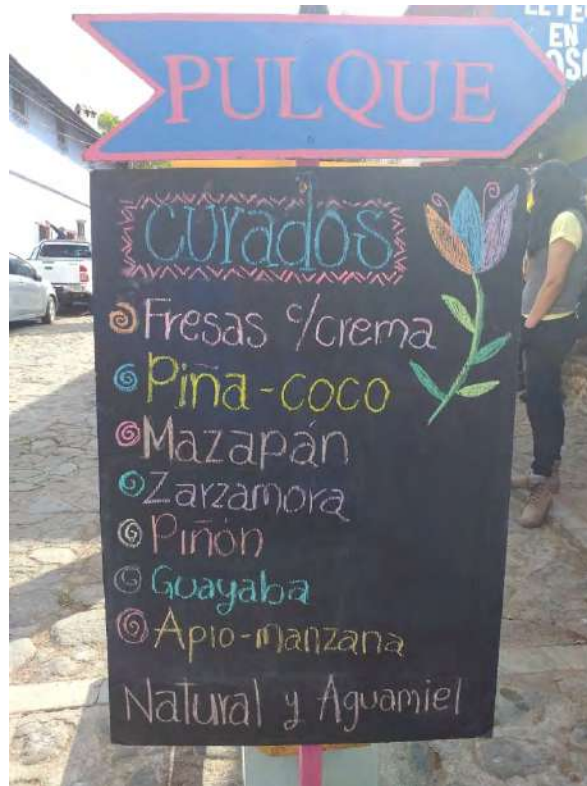 EN
PULQUE
curados
Fresas c/crema
Piña-coco
Mazapán
Zarzamora
Piñón
Guayaba
Apio-manzana
Natural y Aguamiel